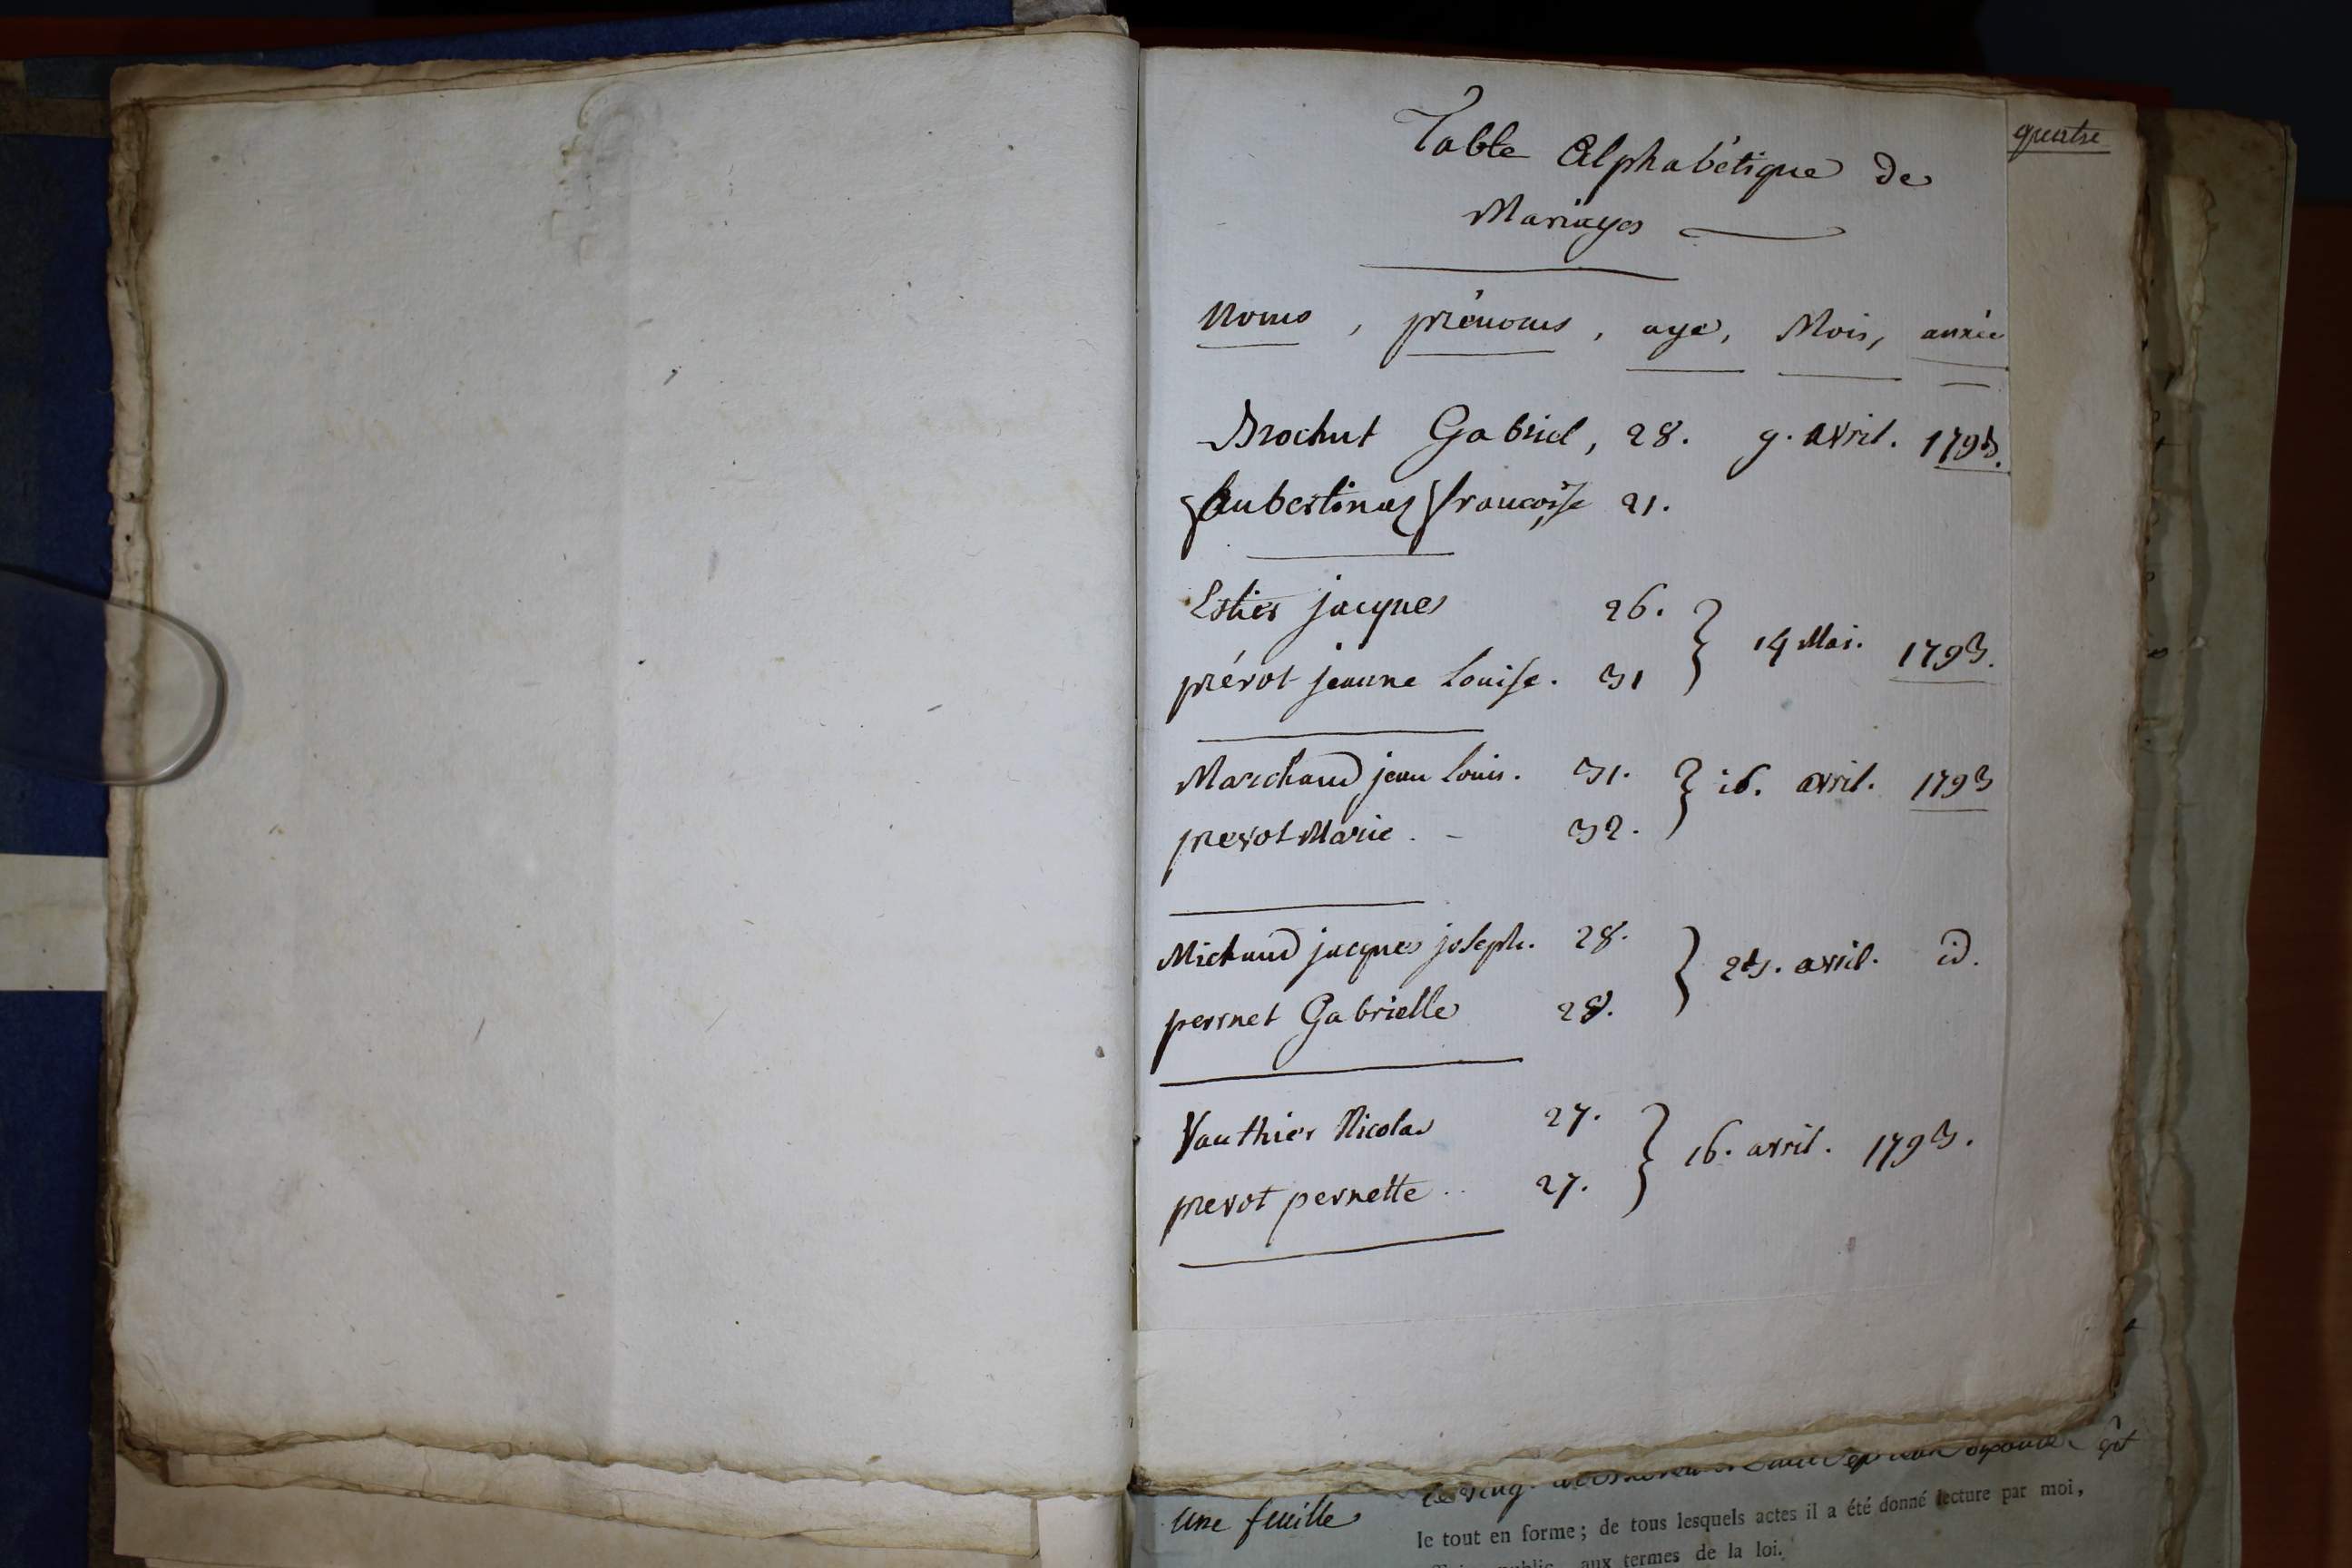 quatre
Table Alphabétique de
Mariages
Noms, prénoms, age, Mois, année
Brochut Gabriel, 28. 9. avril. 1793.
Aubertinaz françoise 21.
Estier jacques 26.
prévot jeanne Louise. 31 } 14 Mai. 1793.
Marchand jean Louis. 31.
prevot Marie. - 32. } 16. avril. 1793
Michaud jacques joseph. 28.
pernet Gabrielle 28. } 23. avril. id.
Vauthier Nicolas 27.
prevot pernette .. 27. } 16. avril. 1793.
une feuille
le tout en forme; de tous lesquels actes il a été donné lecture par moi,
public, aux termes de la loi.